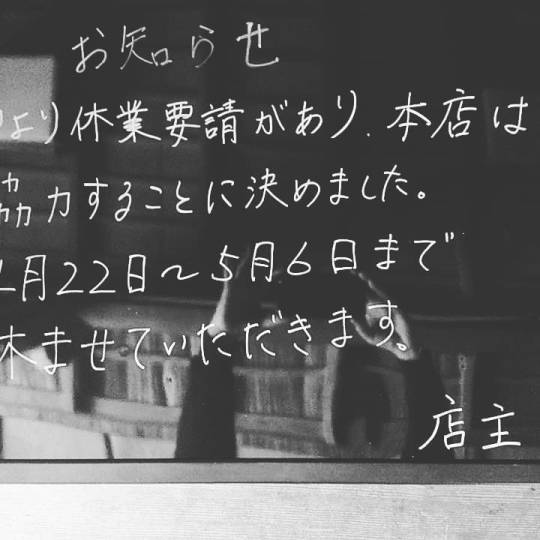 お知らせ
より休業要請があり、本店は
協力することに決めました。
月22日〜5月6日まで
休ませていただきます。
店主